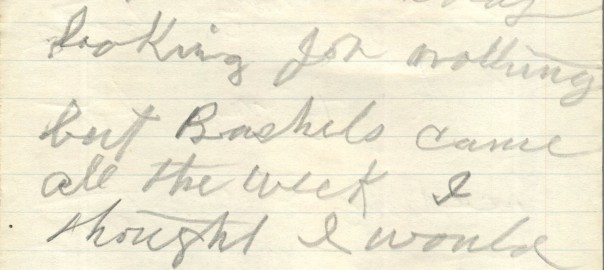 looking for nothing
but Bashels came
all the week I
thought I would